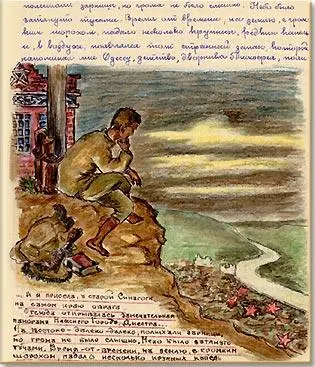 полыхали зарницы, но грома не было слышно. Небо было
затянуто тучами. Время от времени, на землю, с гром-
ким шорохом, падало несколько крупных, редких капель
и, в воздухе, появлялся тот странный запах, который
напоминал мне Одессу, детство, дворника
... И я присела, у старой Синагоги,
на самом краю оврага
Отсюда открывалась замечательная
панорама Нижнего Города, Днестра...
На востоке - далеко-далеко, полыхали зарницы,
но грома не было слышно. Небо было затянуто
тучами. Время от времени, на землю, с громким
шорохом, падало несколько крупных капель